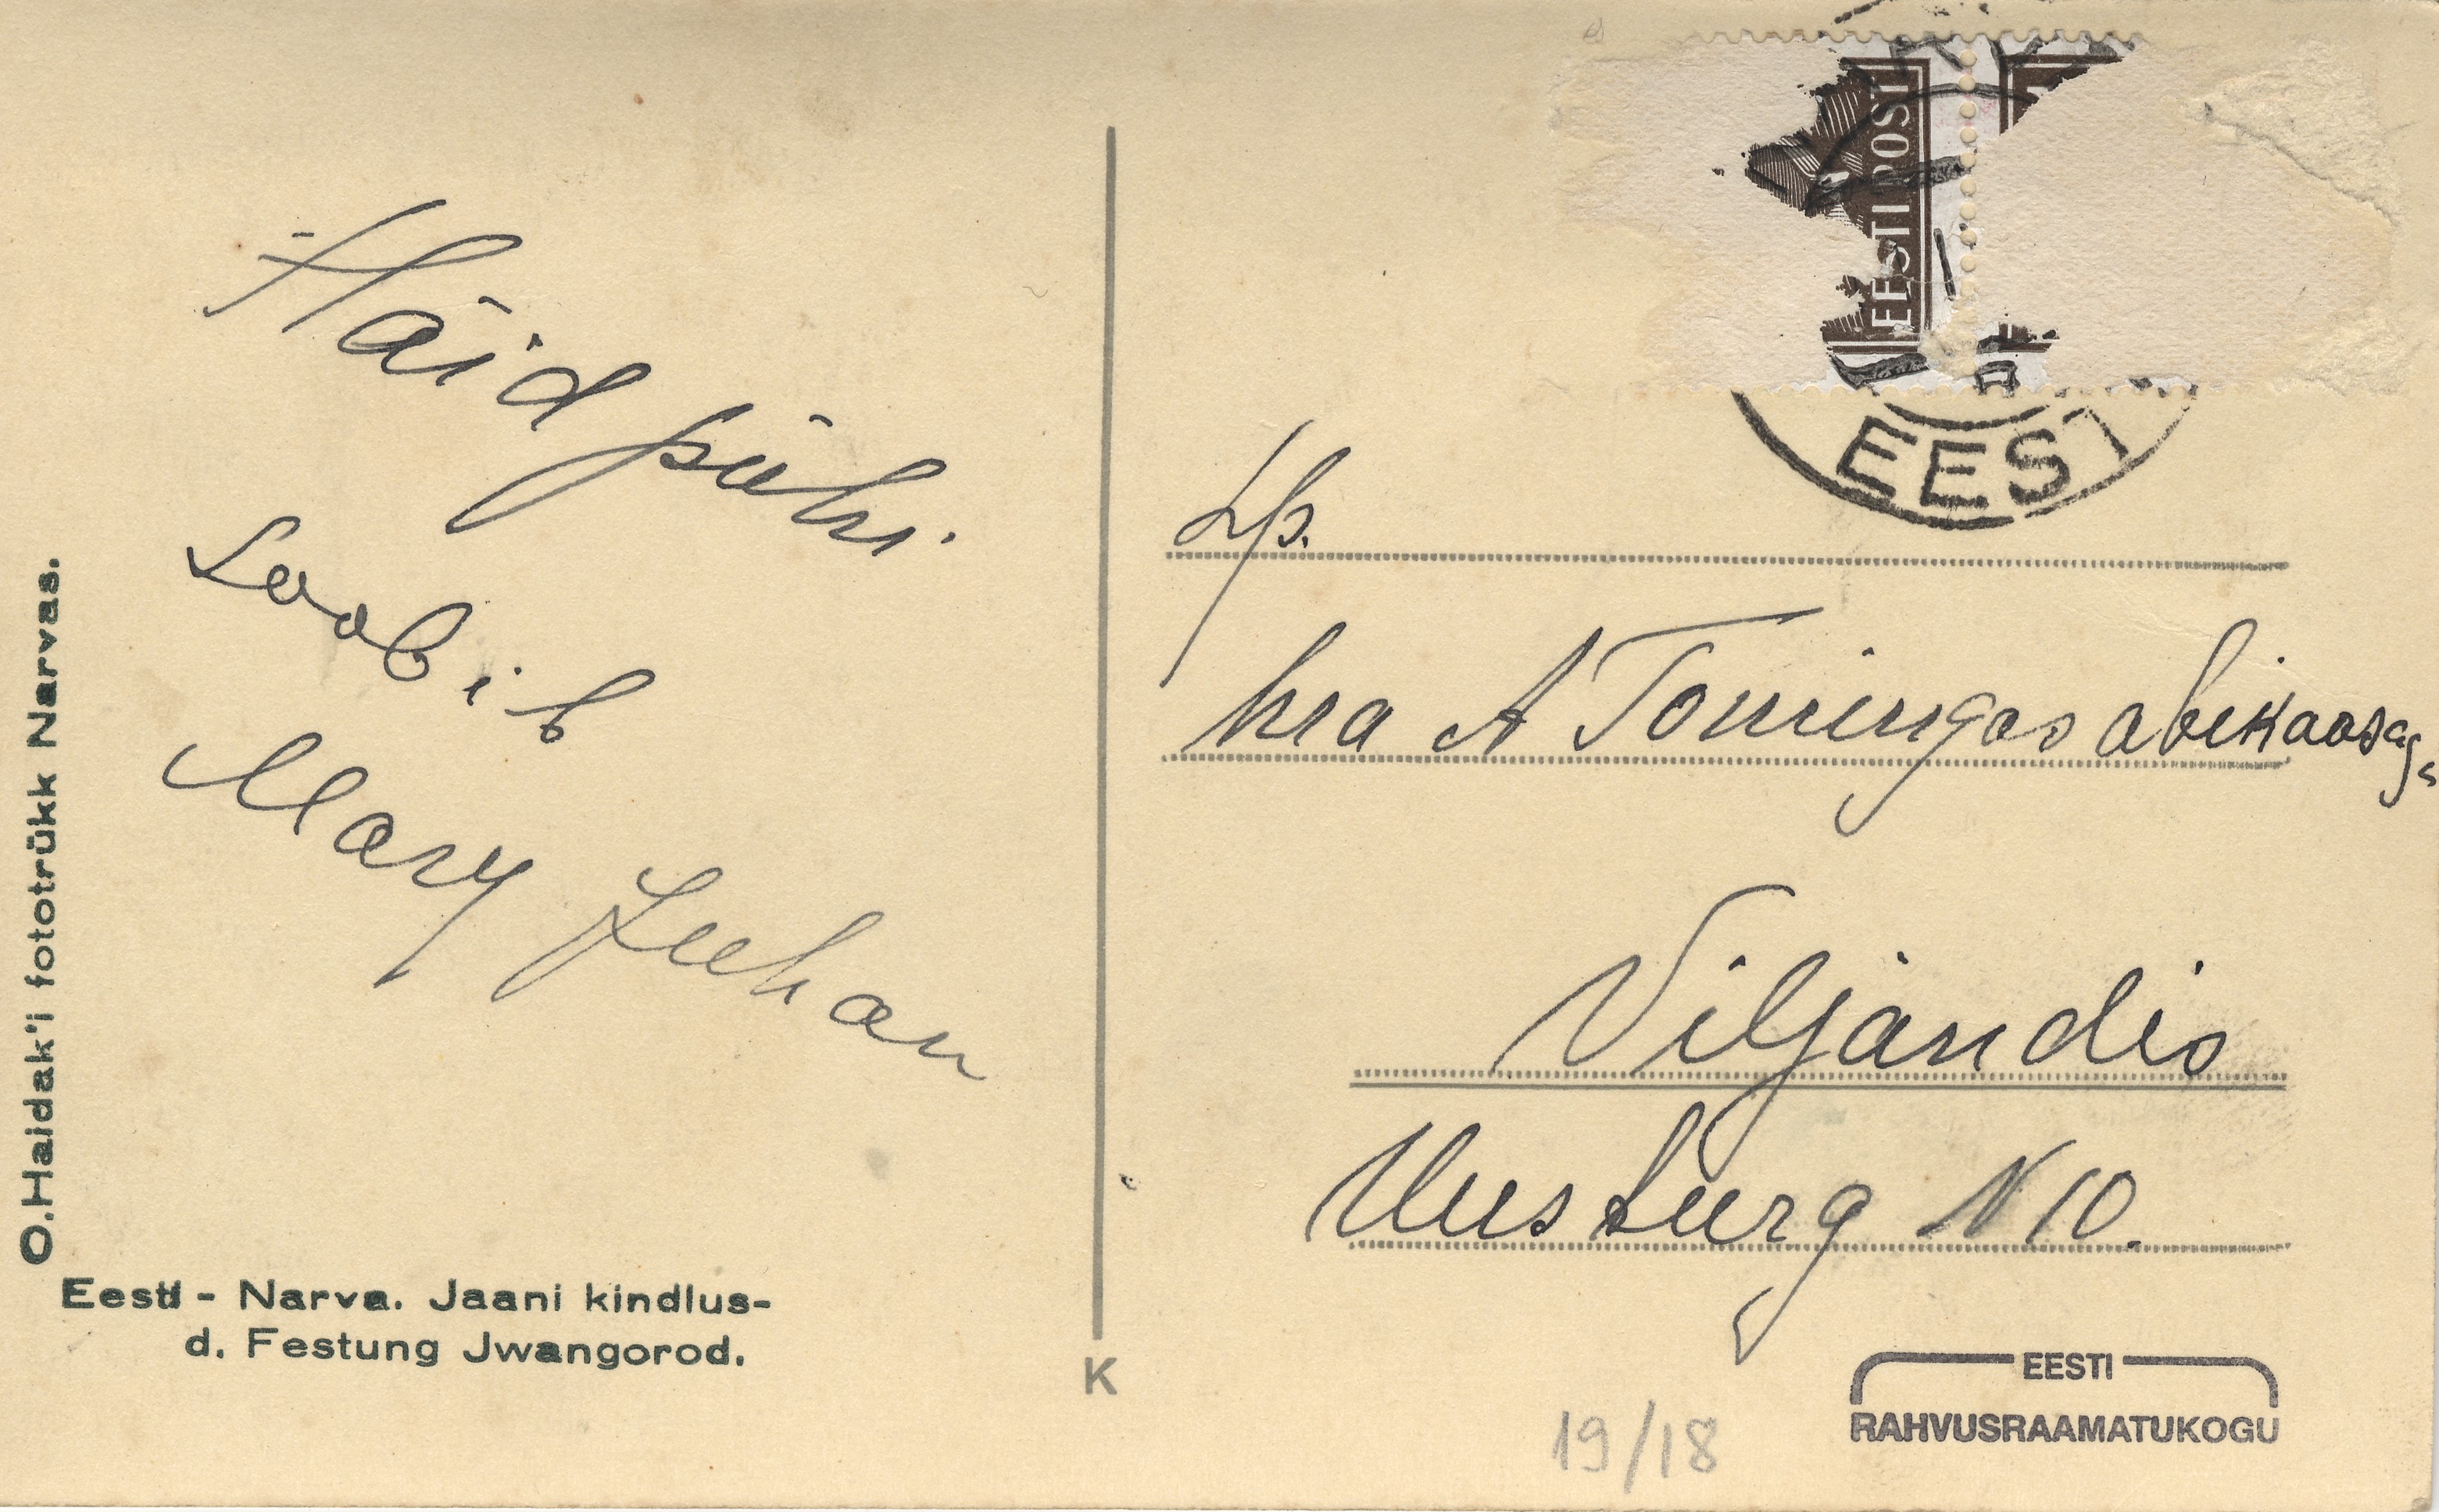 Häid pühi.
Soobib
Mary Juhan
O.Haidak'i fototrükk Narvas.
Eesti - Narva. Jaani kindlus-
d. Festung Jwangorod.
K
EESTI POST
EEST
Lp.
hra A Tomingas abikaasaga
Viljandis
Uus turg N 10.
19/18
EESTI
RAHVUSRAAMATUKOGU